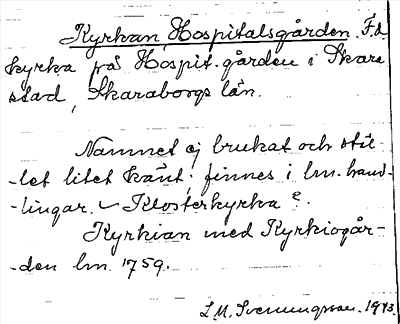 Kyrkan, Hospitalsgården. F.d.
kyrka på Hospit. gården i Skara
stad, Skaraborgs län.
Namnet ej brukat och stäl-
-let litet känt; finnes i lm. hand-
-lingar. Klosterkyrka?
Kyrkian med Kyrkiogår-
-den lm. 1759.
L.M. Svenungsson. 1943.